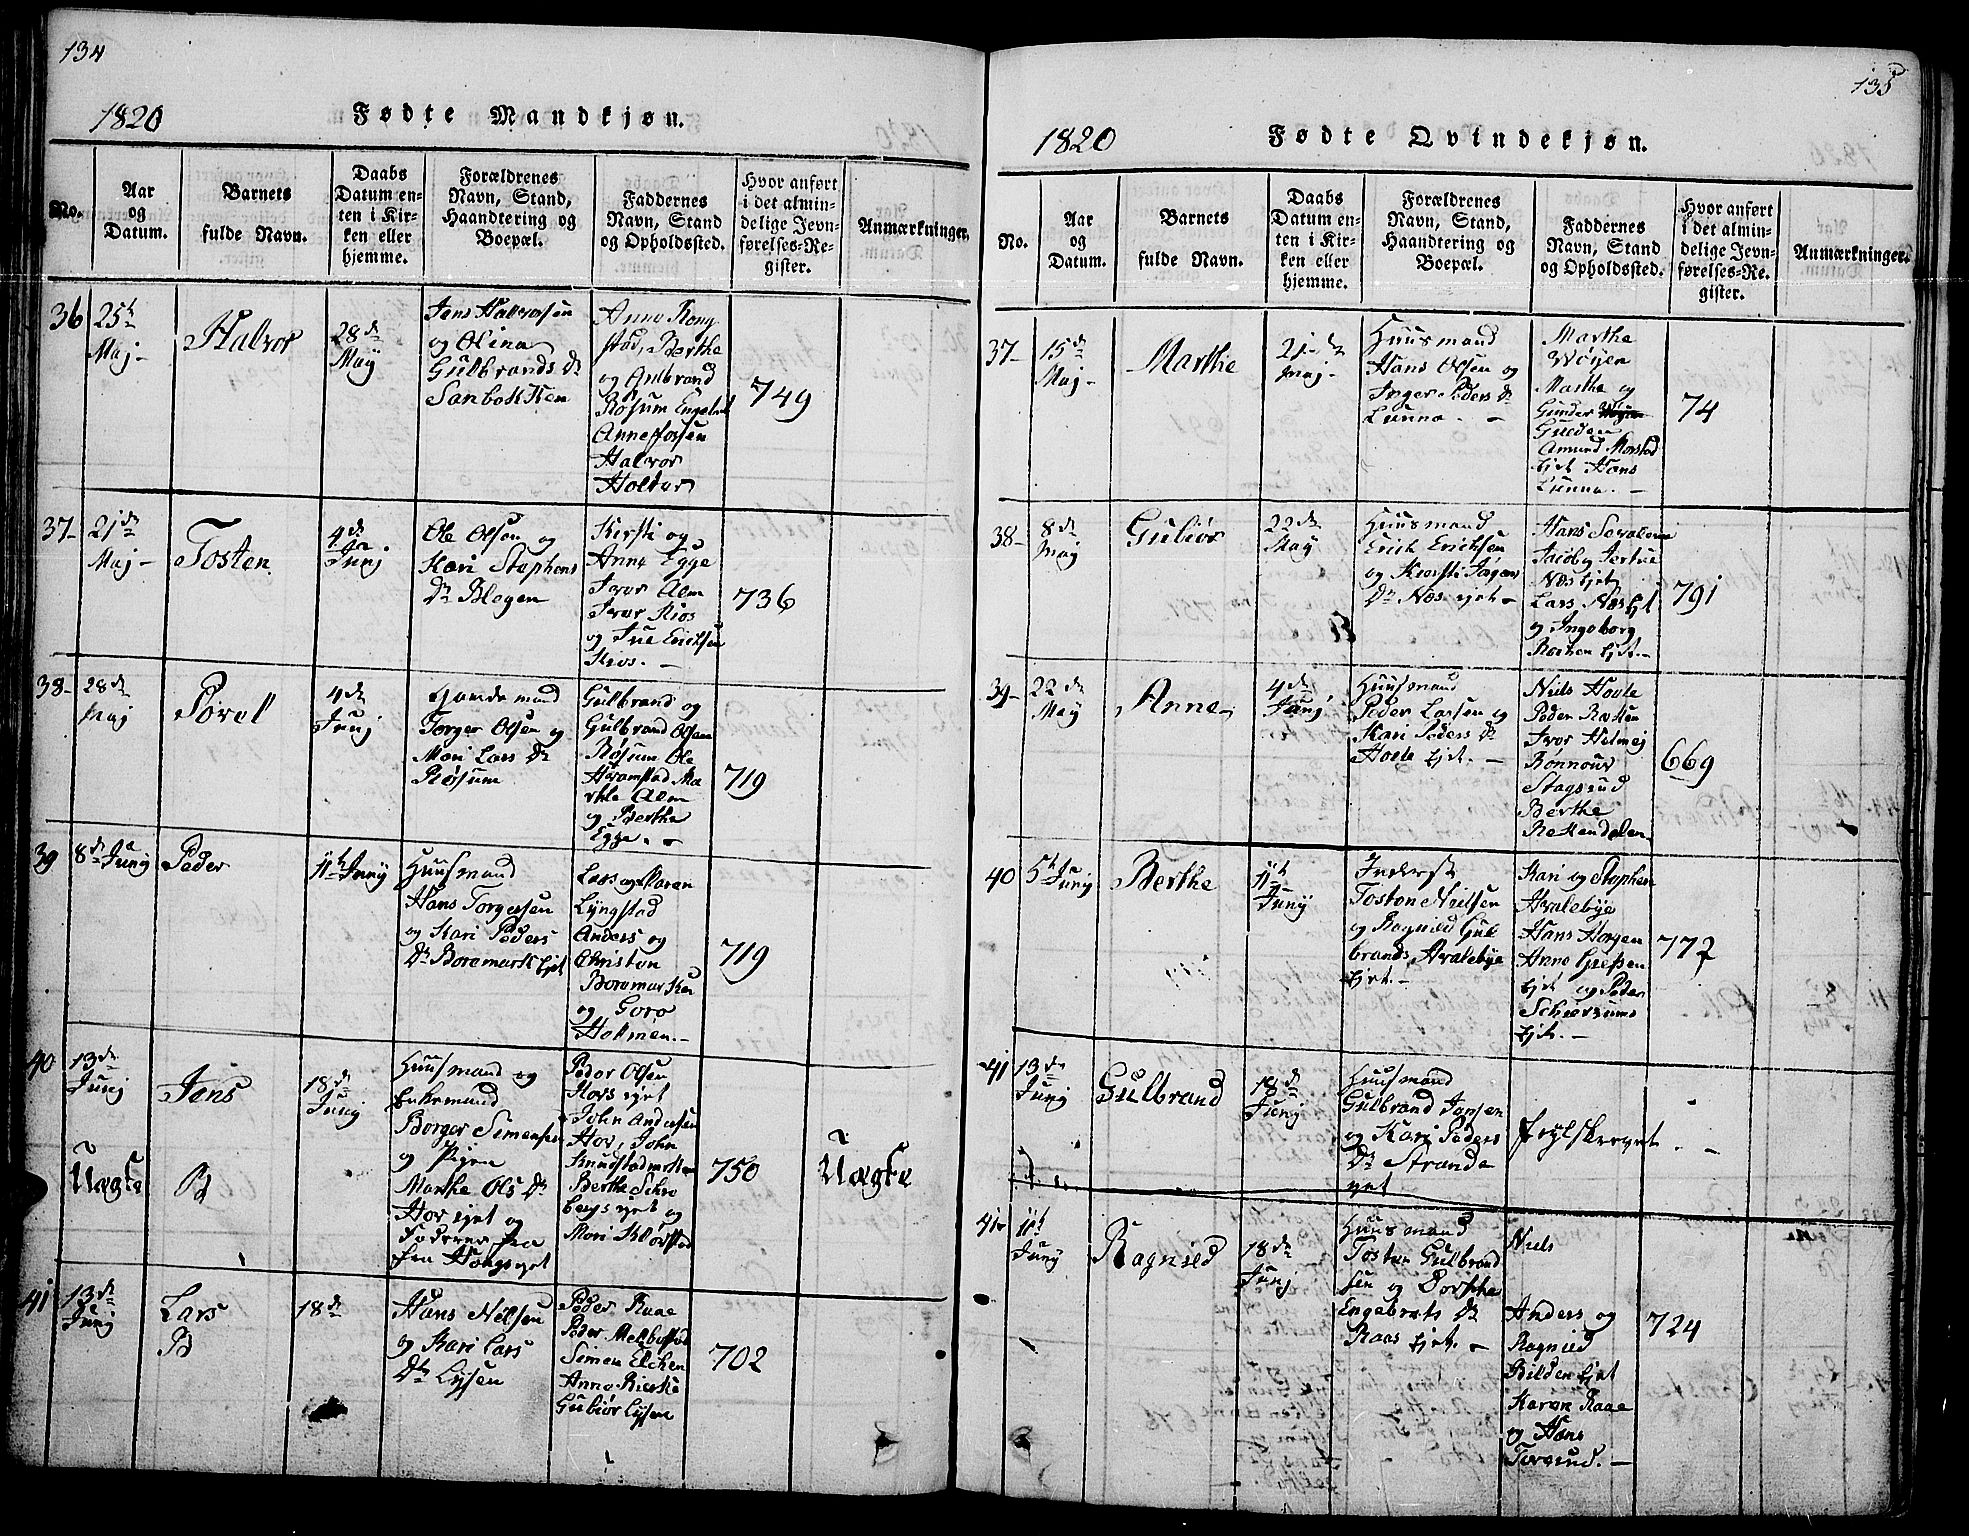 134
1820
Fødte Mandkjøn.
No.
Aar
og
Datum.
Barnets
fulde Navn.
Daabs
Datum en-
ten i Kir-
ken eller
hjemme.
Forældrenes
Navn, Stand,
Haandtering og
Boepæl.
Faddernes
Navn, Stand
og Opholdssted.
Hvor anført
i det almin-
delige Jevn-
førelses-Re-
gister.
Anmærkninger.
36
25de
Maj-
Halvor
28de
Maÿ
Jens Halvorsen
og Olina
Gulbrands Dr
Sanbakken
Anne Kong
stad, Berthe
og Gulbrand
Røsum Engebret
Annefossen
Halvor
Holter
749
37-
21de
Maj-
Tosten
4de
Junj
Ole Olsen og
Kari Stephens
Dr Blegen
Kirsti og
Anne Egge
Iver Alm
Iver Kios
og Iver Ericksen
Kios. -
736
38-
28de
Maj
Povel
4de
Junj
Gaardemand
Torger Olsen og
Mari Lars Dr
Røsum
Gulbrand og
Gulbrand Olsen
Røsum Ole
Hramstad Ma
rthe Alm
og Berthe
Egge. -
719
39
8de Junÿ
Peder
11te Junÿ
Huusmand
Hans Torgersen
og Kari Peders
Dr Boremark Ejet
Lars og Karen
Lyngstad
Anders og
Christen
Boremarken
og Goro
Holmen. -
719
40
13de
Junj
Jens
18de
Junj
Huusmand og
Enkemand
Borger Simensen
og Pigen
Marthe Ols Dr
Hor ejet og
Faderen fra
Hougsejet
Peder Olsen
Hors ejet
John Andersen
Hor, John
Knudstad
Berthe Schre
bergs ejet og
Mari Kløvstad
750
Uægte
B
Uægte
41
13de
Junj
Lars
B
18de
Hans Nilsen
og Kari Lars
Dr Lysen
Peder Raae
Peder Melbostad
Simen Elchen
Anne Bierke
Gubiør Lysen
702
135
1820
Fødte Qvindekjøn.
No.
Aar
og
Datum.
Barnets
fulde Navn.
Daabs
Datum en-
ten i Kir-
ken eller
hjemme.
Forældrenes
Navn, Stand,
Haandtering og
Boepæl.
Faddernes
Navn, Stand
og Opholdssted.
Hvor anført
i det almin-
delige Jevn-
førelses-Re-
gister.
Anmærkninger.
37-
15de
Maj-
Marthe
21de
Maj-
Huusmand
Hans Olsen og
Inger Peders Dr
Lunna. -
Marthe
Wøyen
Marthe og
Gunder
Gulden
Amund Morstad
Ejet Hans
Lunna. -
74
38-
8de
Maj
Gubiør
22de
Maÿ
Huusmand
Erich Ericksen
og Kiersti
Dr Næs ejet -
Hans
Jacob og Jertrue
Næs Ejet
Lars Næs Ejet
og Ingeborg
Røcken Ejet. -
791
39-
22de
Maÿ
Anne
4de
Junj
Huusmand
Peder Larsen og
Kari Peders Dr
Hoole Ejet. -
Niels Hoole
Peder Røcken
Iver Hilmej
Rønnouv
Stagsrud
Berthe
Røkendalen
669
40
5te Junj
Berthe
11te
Junÿ
Inderst
Tosten Nielsen
og Ragnild Gul
brands Hvalebye
Ejet. -
Kari og Stephen
Hvalebye
Hans Horgen
Anne Grefsen
Ejet og Peder
Schiersums
Ejet. -
777
41
13de
Junj
Gulbrand
18de
Junj
Huusmand
Gulbrand Jensen
og Kari Peders
Dr Strande
yet
fejlskrevet. -
41
11te
Junÿ
Ragnild
18de
Junj
Huusmand
Tosten Gulbrand
sen og Dorthe
Engebrets Dr
Raas Ejet. -
Niels
Anders og
Ragnild
Bilden Ejet
Karen Raae
og Hans
Torsrud. -
724